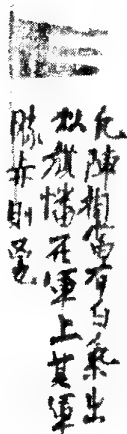 凡陣相當有白氣出
似旗幡在軍上其軍
勝亦則